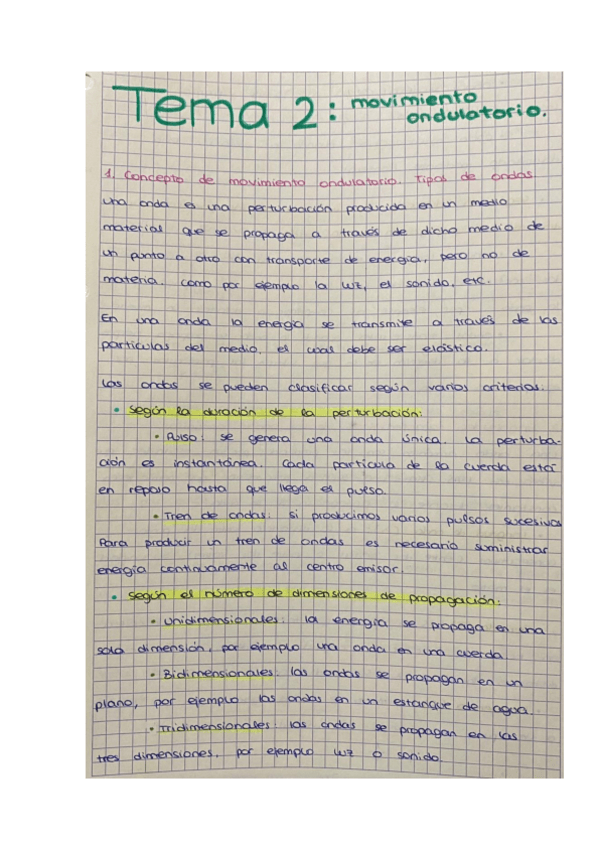 Tema 2: movimiento
ondulatorio.
1. Concepto de movimiento ondulatorio. Tipos de ondas
Una onda es una perturbación producida en un medio
material que se propaga a través de dicho medio de
un punto a otro con transporte de energía, pero no de
materia. como por ejemplo la luz, el sonido, etc.
En una onda la energía se transmite a través de las
partículas del medio, el cual debe ser elástico.
Las ondas se pueden clasificar según varios criterios:
• Según la duración de la perturbación:
• Pulso: se genera una onda única. La perturba-
ción es instantánea. Cada partícula de la cuerda está
en reposo hasta que llega el pulso.
• Tren de ondas: si producimos varios pulsos sucesivos
Para producir un tren de ondas es necesario suministrar
energía continuamente al centro emisor.
• Según el número de dimensiones de propagación:
• Unidimensionales: la energía se propaga en una
sola dimensión, por ejemplo una onda en una cuerda.
• Bidimensionales: las ondas se propagan en un
plano, por ejemplo las ondas en un estanque de agua.
• Tridimensionales: las ondas se propagan en las
tres dimensiones, por ejemplo luz o sonido.